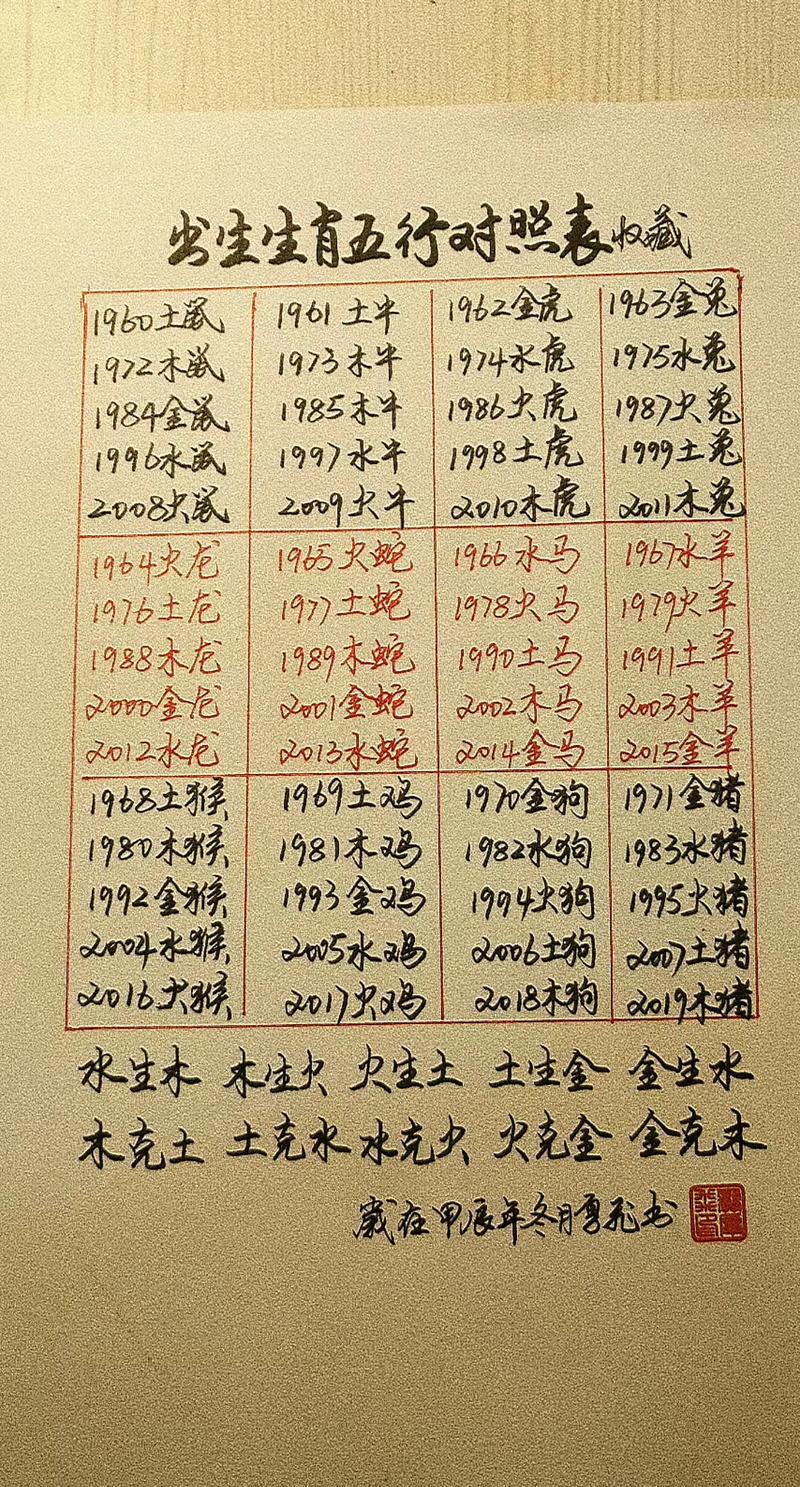 出生生肖五行对照表收藏
1960土鼠 1961土牛 1962金虎 1963金兔
1972木鼠 1973木牛 1974水虎 1975水兔
1984金鼠 1985木牛 1986火虎 1987火兔
1996水鼠 1997水牛 1998土虎 1999土兔
2008火鼠 2009火牛 2010木虎 2011木兔
1964火龙 1965火蛇 1966水马 1967水羊
1976土龙 1977土蛇 1978火马 1979火羊
1988木龙 1989木蛇 1990土马 1991土羊
2000金龙 2001金蛇 2002木马 2003木羊
2012水龙 2013水蛇 2014金马 2015金羊
1968土猴 1969土鸡 1970金狗 1971金猪
1980木猴 1981木鸡 1982水狗 1983水猪
1992金猴 1993金鸡 1994火狗 1995火猪
2004水猴 2005水鸡 2006土狗 2007土猪
2016火猴 2017火鸡 2018木狗 2019木猪
水生木 木生火 火生土 土生金 金生水
木克土 土克水 水克火 火克金 金克木
岁在甲辰年冬月勇飞书